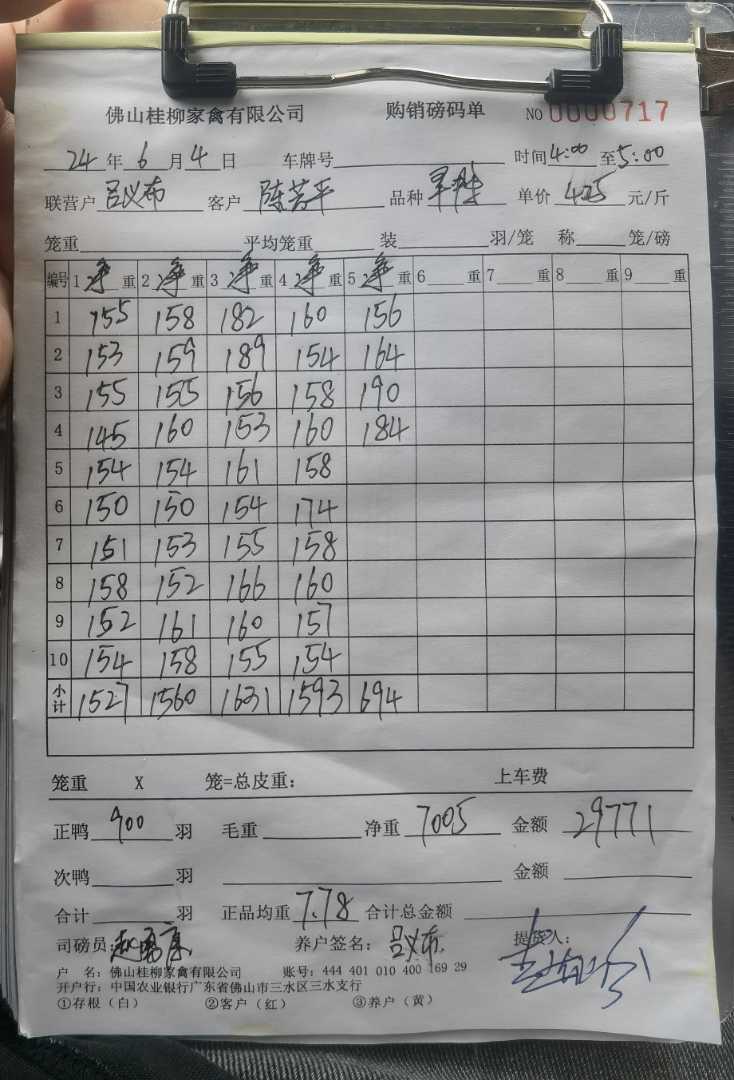 佛山桂柳家禽有限公司 购销磅码单 NO 0000717
24年6月4日 车牌号 时间4:00至5:00
联营户吕义布 客户陈芳平 品种 单价4.25元/斤
笼重 平均笼重 装 羽/笼 称 笼/磅
编号 1净重 2净重 3净重 4净重 5净重 6重 7重 8重 9重
1 155 158 182 160 156
2 153 159 189 154 164
3 155 155 156 158 190
4 145 160 153 160 184
5 154 154 161 158
6 150 150 154 174
7 151 153 155 158
8 158 152 166 160
9 152 161 160 157
10 154 158 155 154
小计 1527 1560 1631 1593 694
笼重 X 笼=总皮重: 上车费
正鸭900羽 毛重 净重7005 金额29771
次鸭 羽 金额
合计 羽 正品均重7.78 合计总金额
司磅员: 养户签名: 吕义布 提货人:
户 名: 佛山桂柳家禽有限公司 账号: 444 401 010 400 169 29
开户行: 中国农业银行广东省佛山市三水区三水支行
①存根(白) ②客户(红) ③养户(黄)